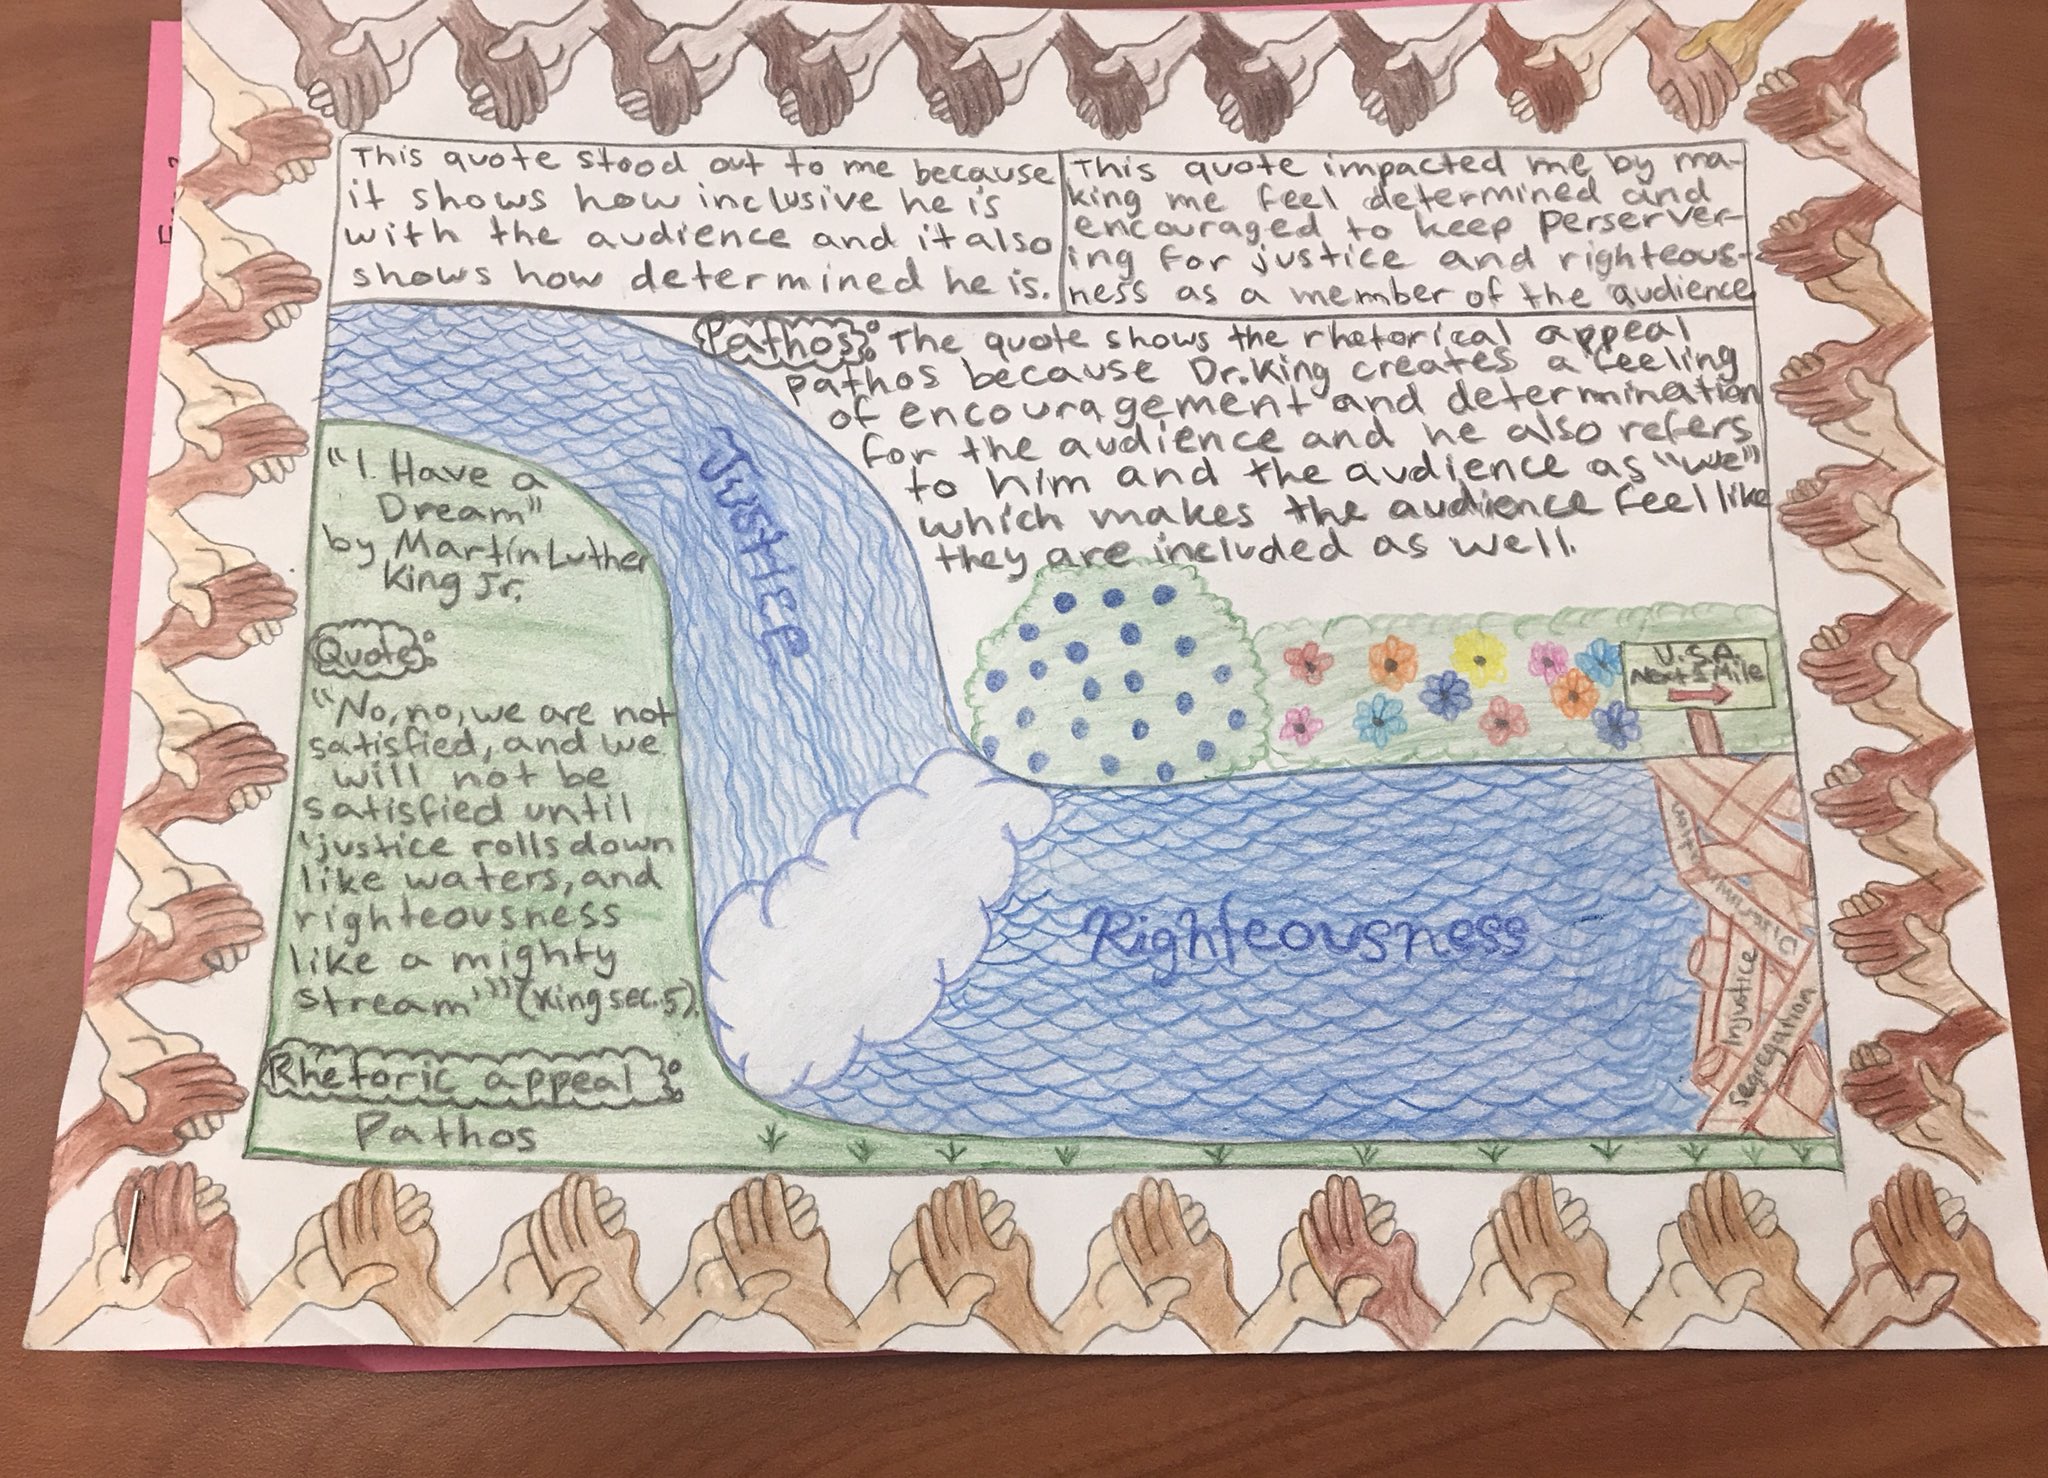 This quote stood out to me because
it shows how inclusive he is
with the audience and it also
shows how determined he is.
This quote impacted me by ma-
king me feel determined and
encouraged to keep perserver-
ing for justice and righteous-
ness as a member of the audience
Pathos: The quote shows the rhetorical appeal
pathos because Dr.King creates a feeling
of encouragement and determination
for the audience and he also refers
to him and the audience as "we"
which makes the audience feel like
they are included as well.
Justice
"I Have a
Dream"
by Martin Luther
King Jr.
Quote:
"No, no, we are not
satisfied, and we
will not be
satisfied until
'justice rolls down
like waters, and
righteousness
like a mighty
stream'" (King sec. 5).
Rhetoric appeal:
Pathos
U.S.A.
Next 5 Mile
Righteousness
Discrimination
Injustice
Segregation